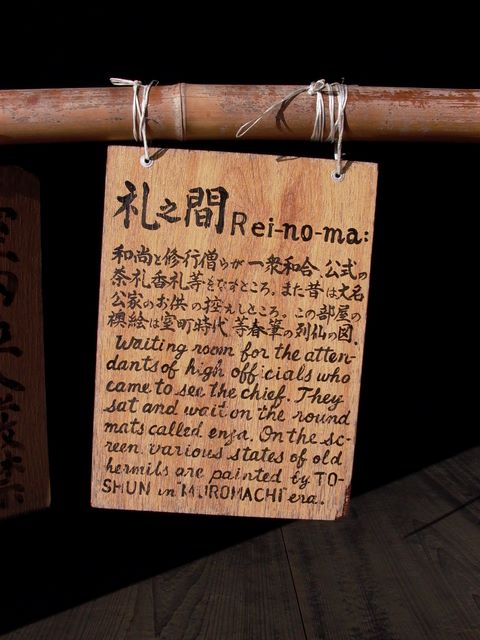 礼之間 Rei-no-ma:
和尚と修行僧らが一衆和合、公式の
茶礼香礼等をなすところ。また昔は大名
公家のお供の控えしところ。この部屋の
襖絵は室町時代 等春筆の列仙の図.
Waiting room for the atten-
dants of high officials who
came to see the chief. They
sat and wait on the round
mats called enza. On the sc-
reen various states of old
hermils are painted by TO-
SHUN in "MUROMACHI" era.